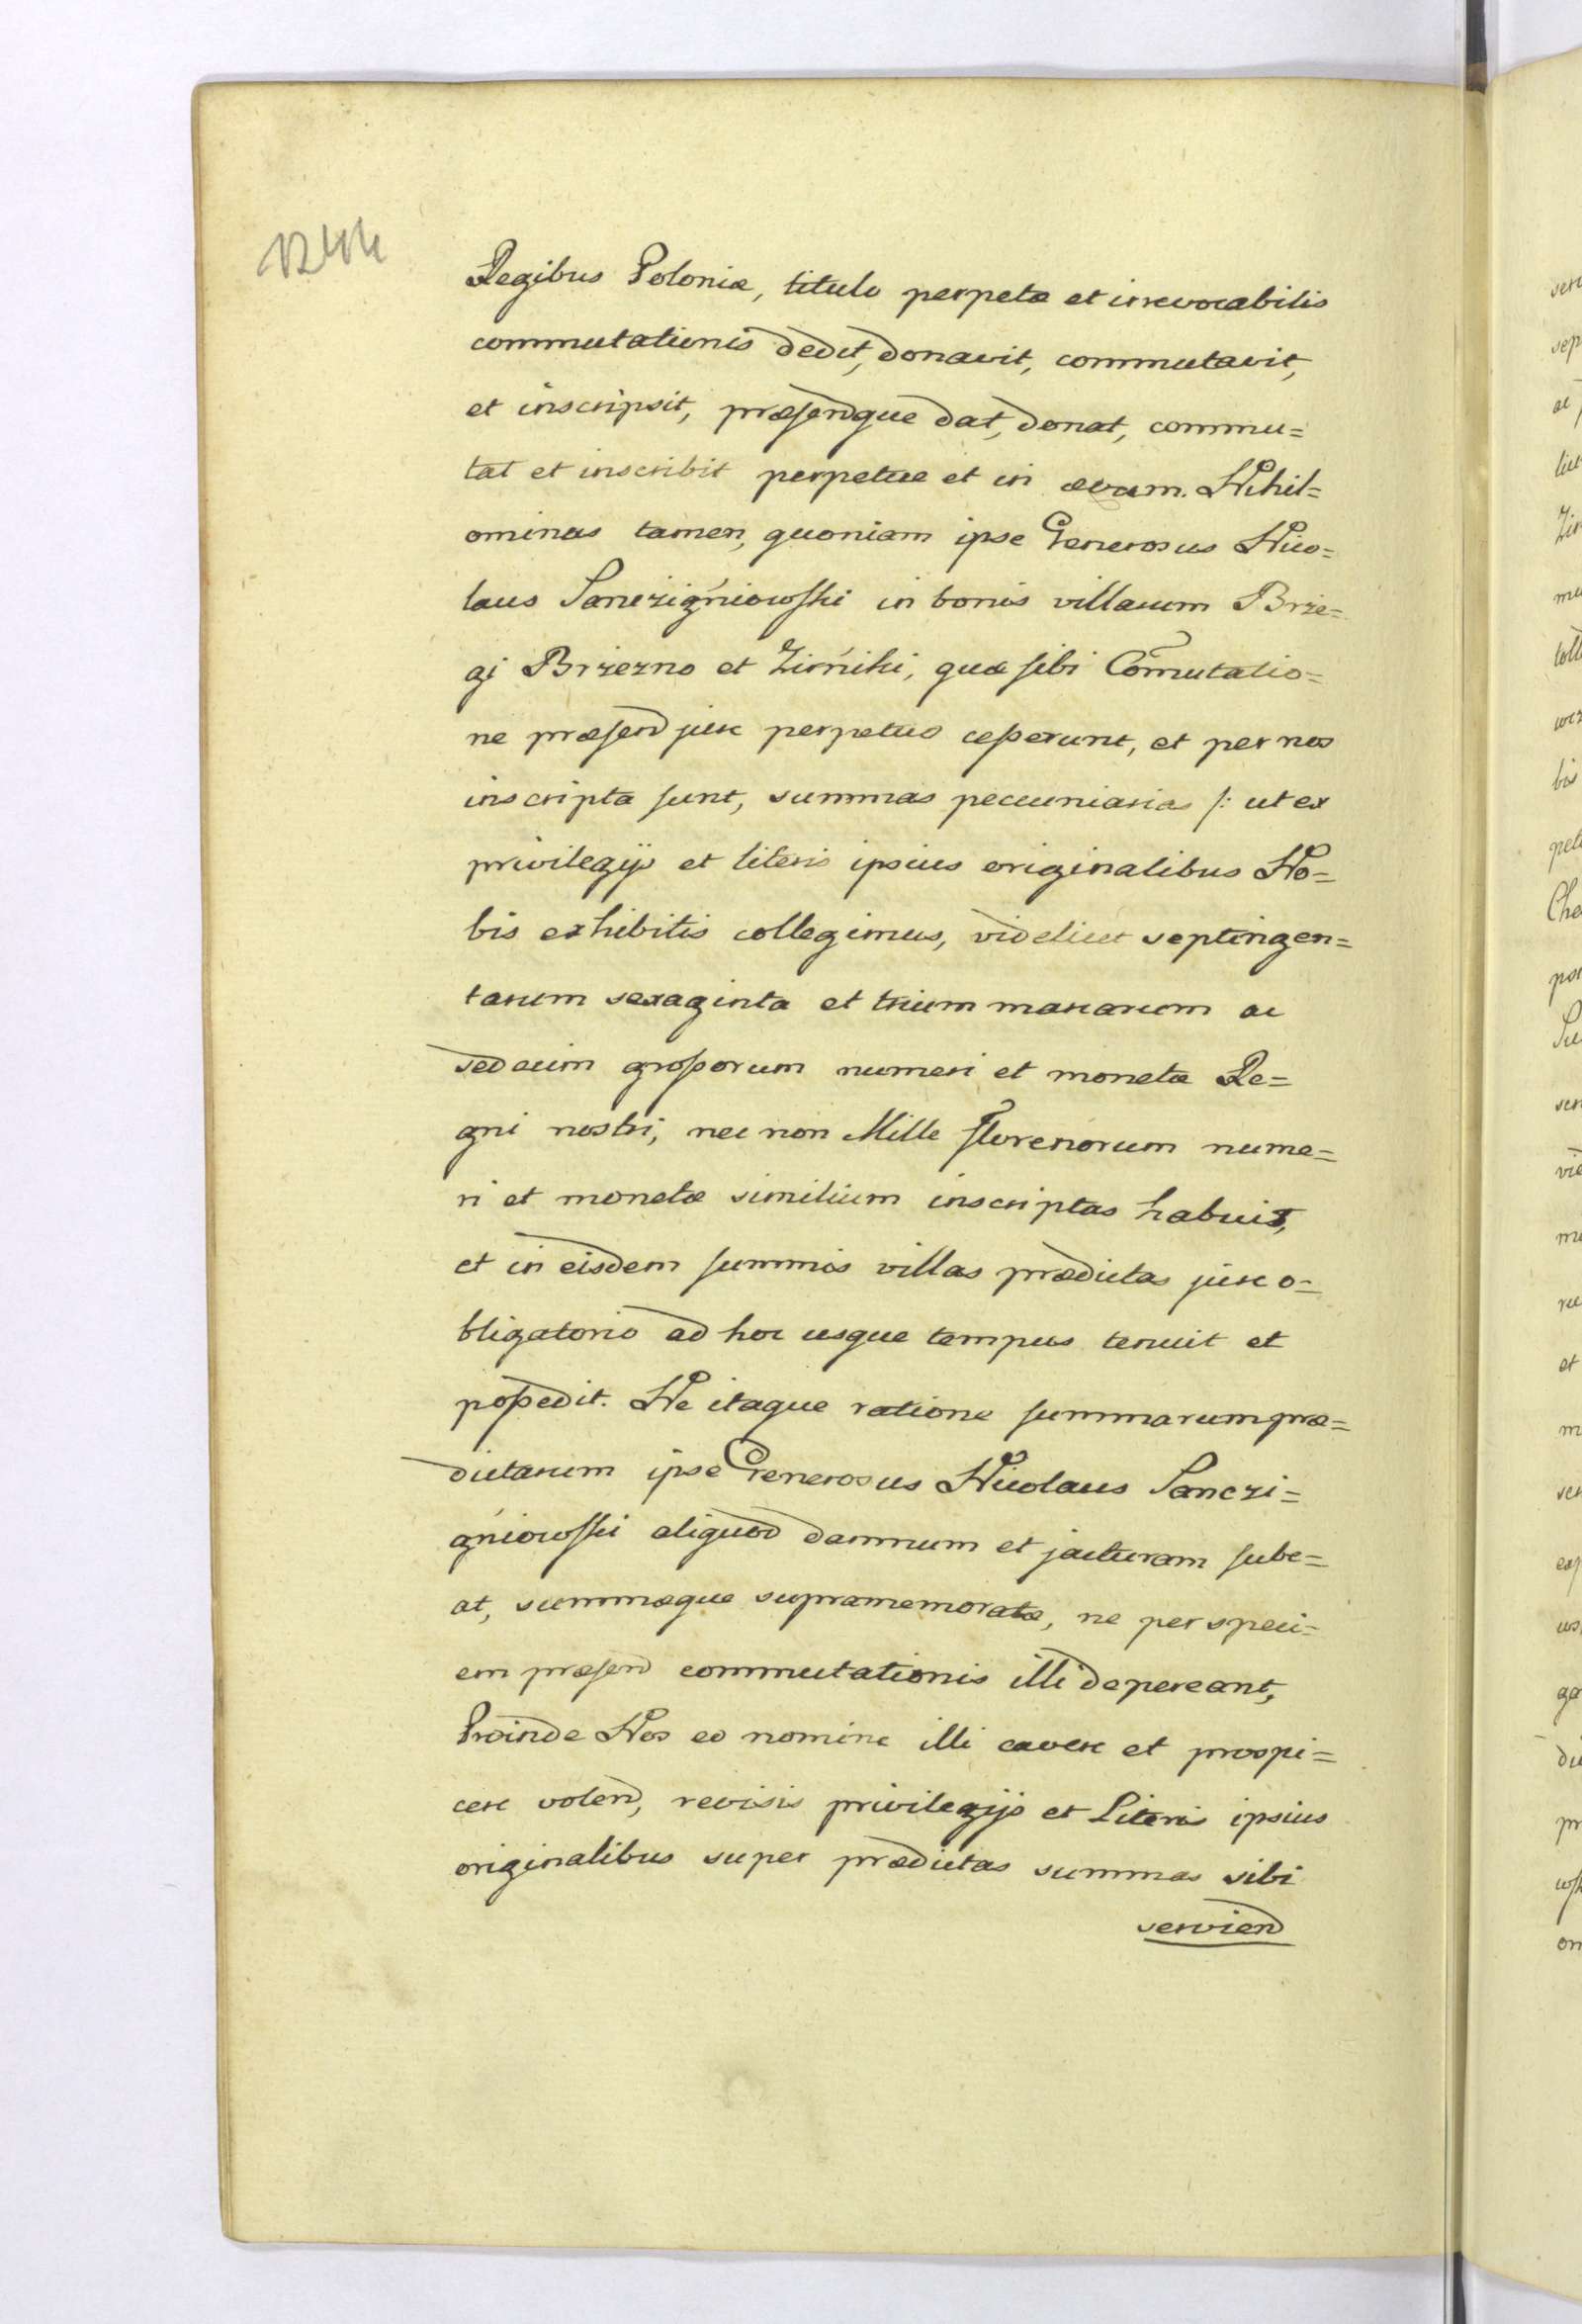 1244
Regibus Poloniæ, titulo perpetæ et irrevocabilis
commutationis dedit, donavit, commutavit,
et inscripsit, præsendque dat, donat, commu=
tat et inscribit perpetue et in ævum. Nihil=
ominus tamen, quoniam ipse Generosus Nico=
laus Sanczigńiowski in bonis villarum Brze=
gj Brzezno et Zirńiki, quæ sibi Com̃utatio=
ne præsend jure perpetuo cesserunt, et per nos
inscripta sunt, summas pecuniarias /: ut ex
privilegijs et literis ipsius originalibus No=
bis exhibitis collegimus, videlicet septingen=
tarum sexaginta et trium marcarum ac
sedecim grossorum numeri et monetæ Re=
gni nostri, nec non Mille florenorum nume=
ri et monetæ similium inscriptas habuit,
et in eisdem summis villas prædictas jure o=
bligatorio ad hoc usque tempus tenuit et
possedit. Ne itaque ratione summarum præ=
dictarum ipse Generosus Nicolaus Sanczi=
gńiowski aliquod damnum et jacturam sube=
at, summæque supramemoratæ, ne per speci=
em præsend commutationis illi depereant,
Proinde Nos eo nomine illi cavere et prospi=
cere volend, revisis privilegijs et Literis ipsius
originalibus super prædictas summas sibi
serviend